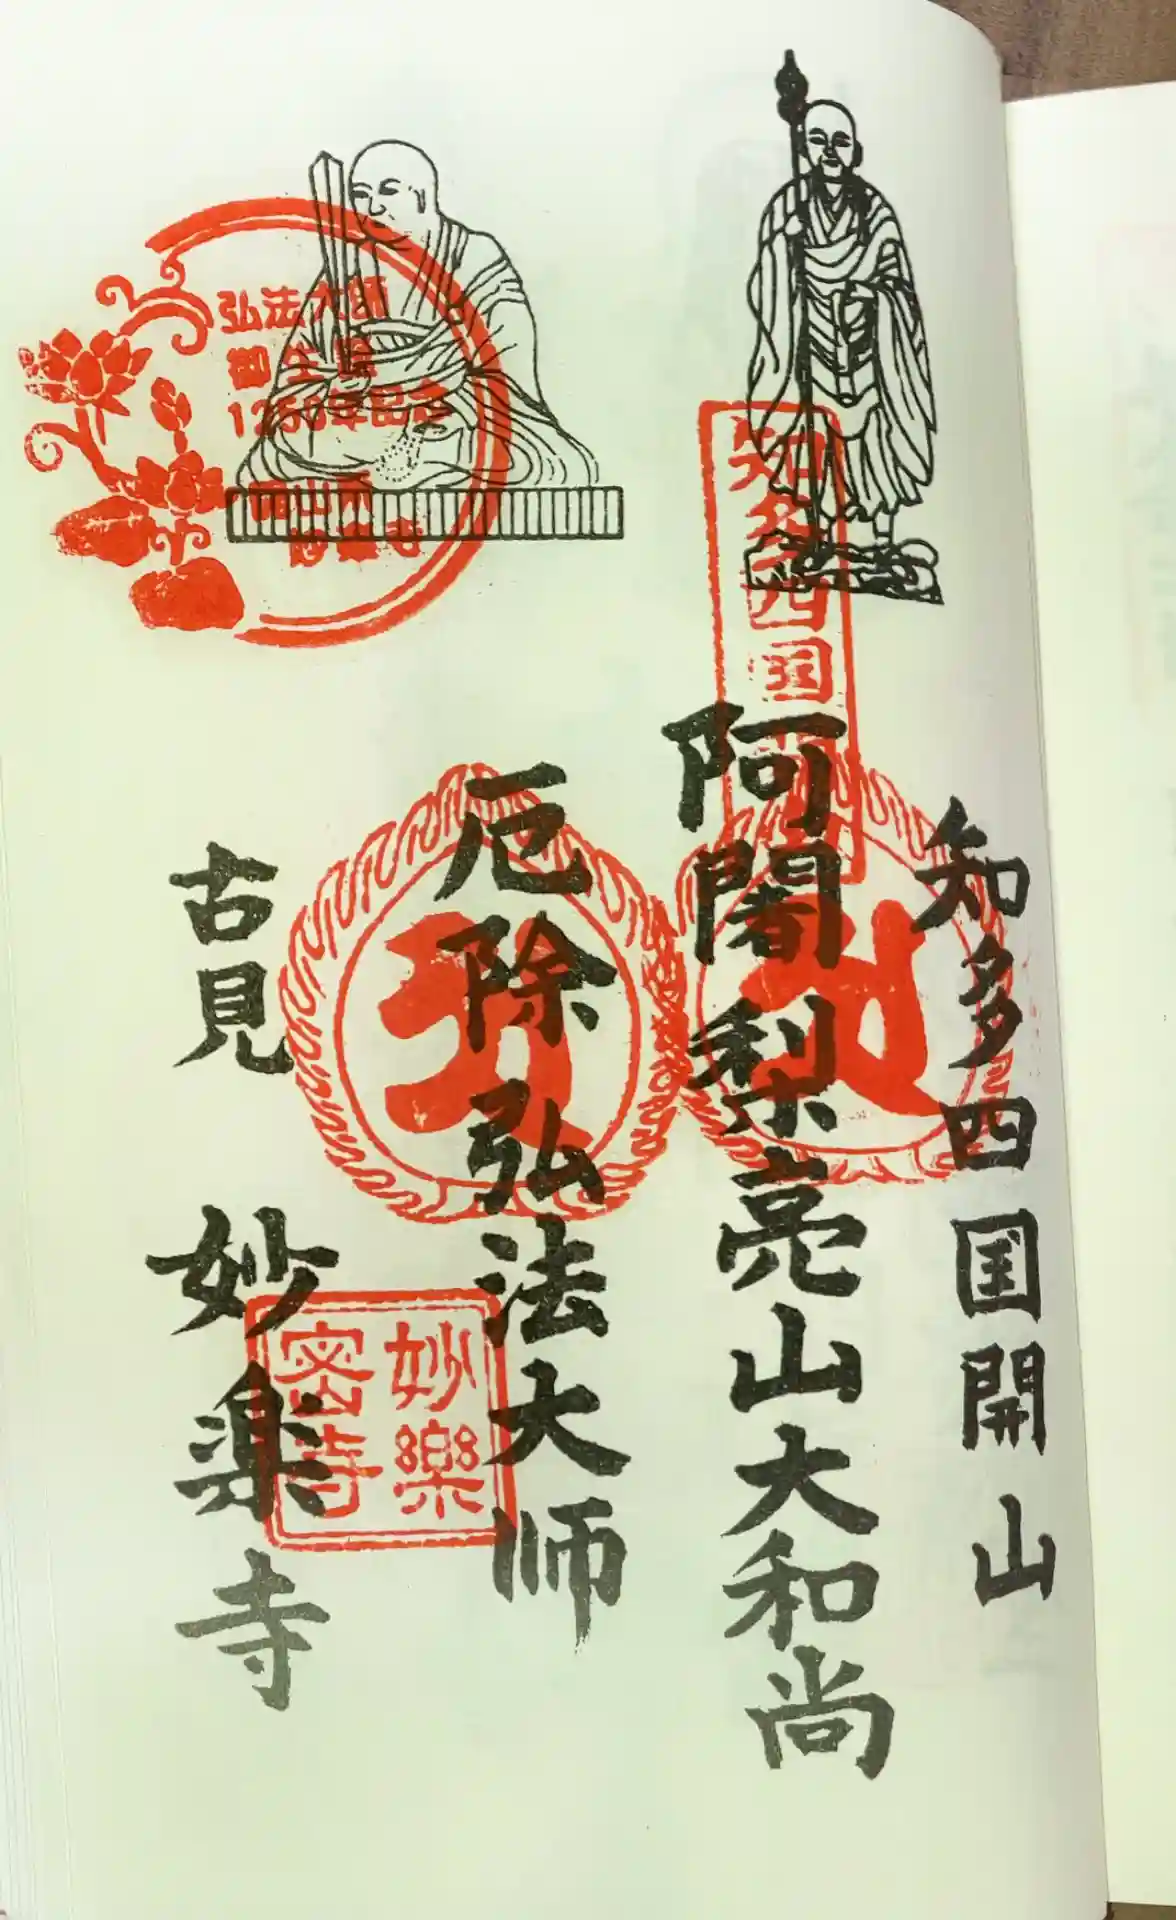 知多四国開山
阿闍梨亮山大和尚
厄除弘法大師
古見 妙楽寺
知多四国
弘法大師
御生誕
1250年記念
妙樂
密寺